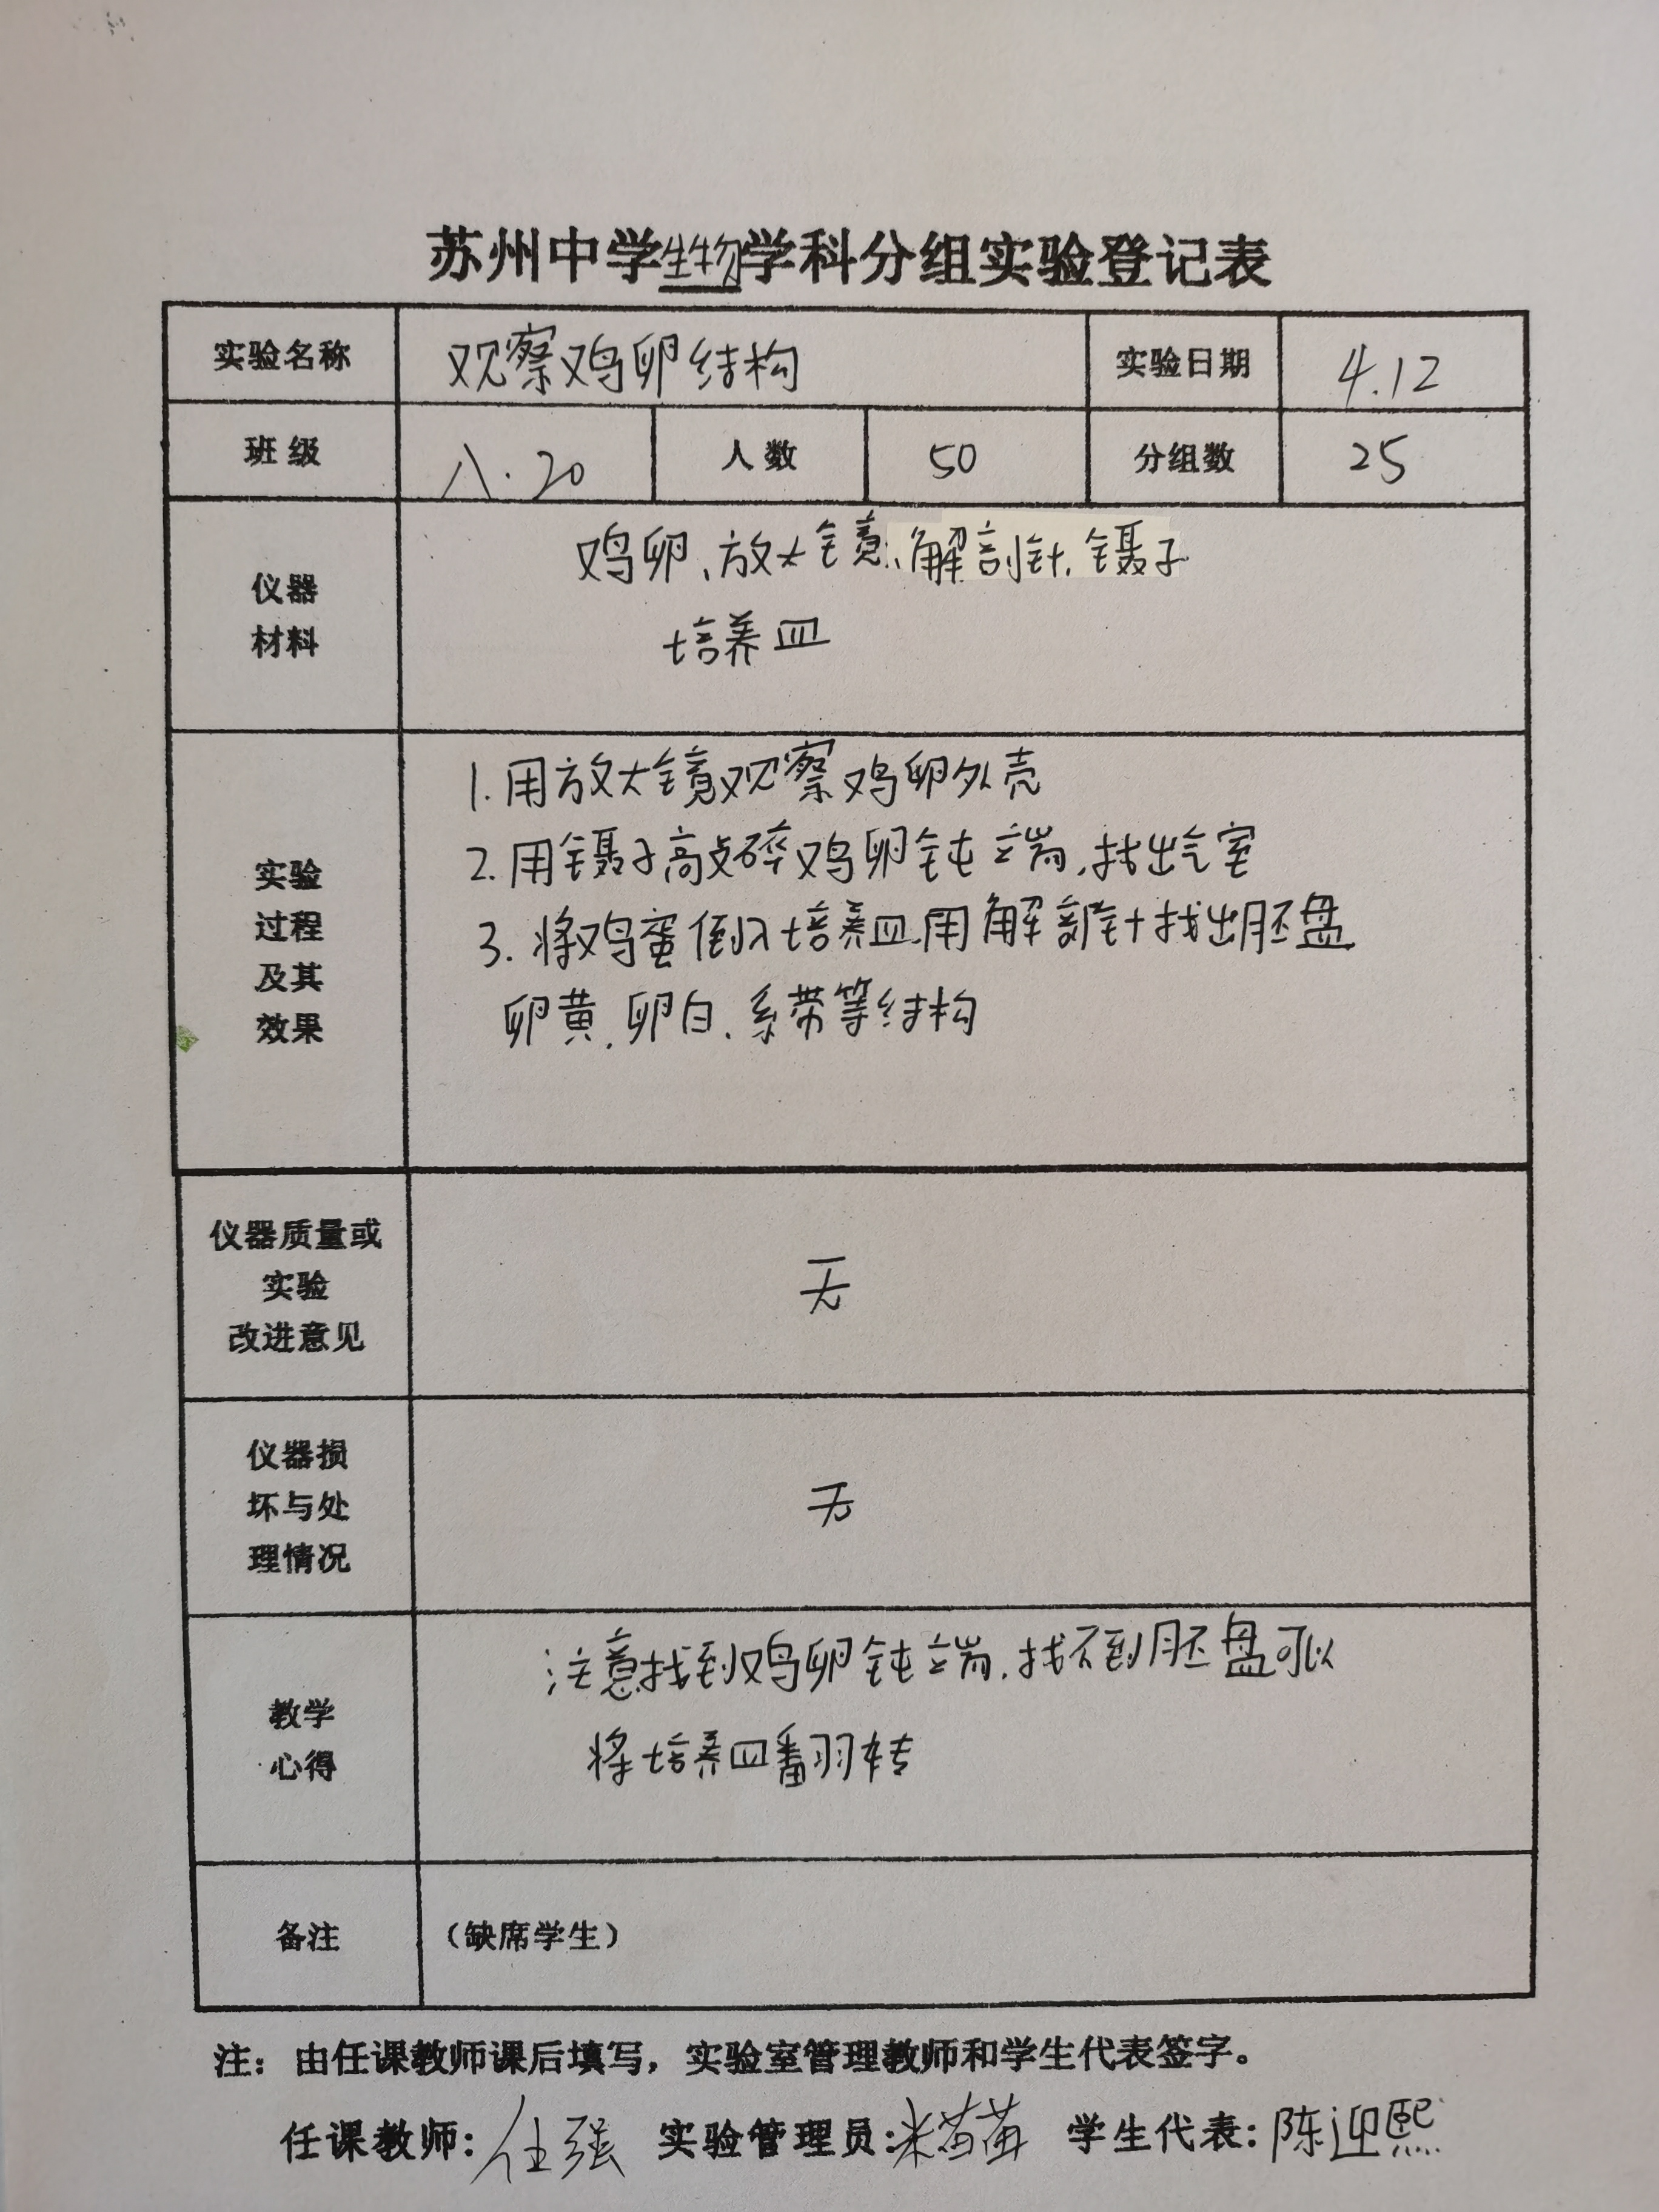 苏州中学生物学科分组实验登记表
实验名称 观察鸡卵结构 实验日期 4.12
班级 八.20 人数 50 分组数 25
仪器
材料
鸡卵、放大镜、解剖针、镊子
培养皿
实验
过程
及其
效果
1. 用放大镜观察鸡卵外壳
2. 用镊子敲碎鸡卵钝端,找出气室
3. 将鸡蛋倒入培养皿,用解剖针找出胚盘
卵黄、卵白、系带等结构
仪器质量或
实验
改进意见
无
仪器损
坏与处
理情况
无
教学
心得
注意找到鸡卵钝端,找不到胚盘可以
将培养皿翻转
备注 (缺席学生)
注:由任课教师课后填写,实验室管理教师和学生代表签字。
任课教师:任强 实验管理员: 学生代表:陈迎熙